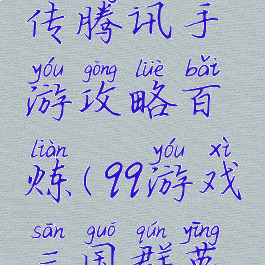 传腾讯手
yóu gōng lüè bǎi
游攻略百
liàn yóu xì
炼(99游戏
sān guó qún yīng
三国群英